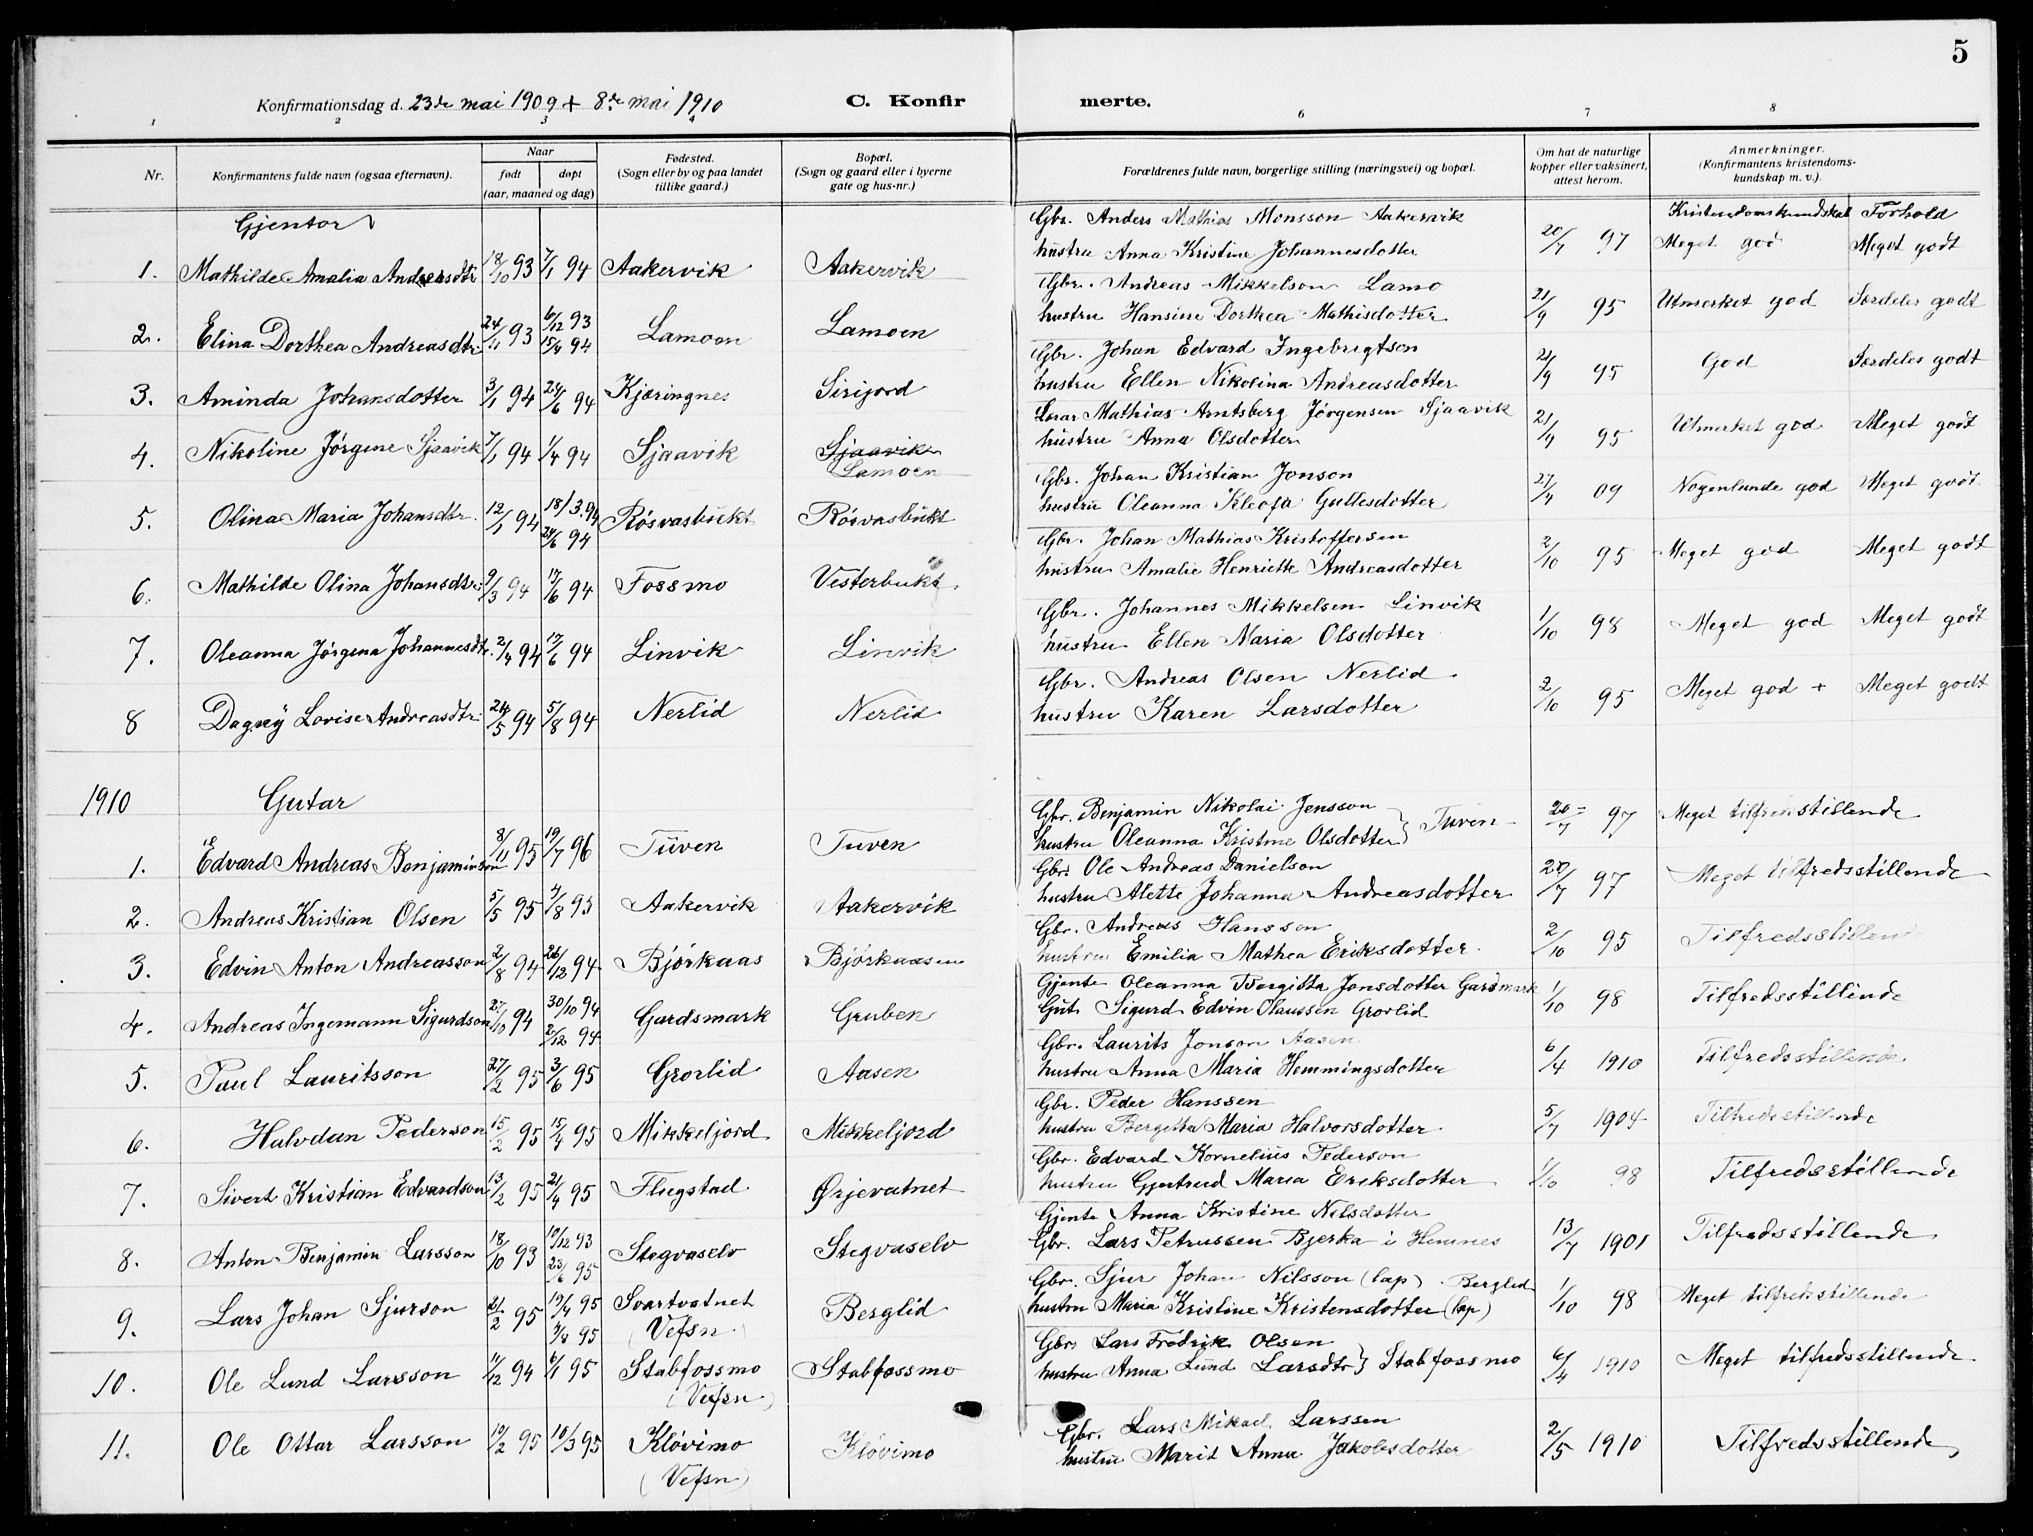 5
Konfirmationsdag d. 23de mai 1909 + 8de mai 1910 C. Konfir merte.
1 2 3 4 6 7 8
Nr. Konfirmantens fulde navn (ogsaa efternavn). Naar født døpt (aar, maaned og dag) Fødested. (Sogn eller by og paa landet tillike gaard.) Bopæl. (Sogn og gaard eller i byerne gate og hus-nr.) Forældrenes fulde navn, borgerlige stilling (næringsvei) og bopæl. Om hat de naturlige kopper eller vaksinert, attest herom. Anmerkninger. (Konfirmantens kristendoms-kundskap m. v.).
Gjentor Kristendomskundskab Forhold
Gbr. Anders Mathias Monsson Aakervik
1. Mathilde Amalia Andersdtr 18/10 93 7/1 94 Aakervik Aakervik hustru Anna Kristine Johannesdotter 20/7 97 Meget god Meget godt
Gbr. Andreas Mikkelson Lamo
2. Elina Dorthea Andreasdtr 24/11 93 6/12 93 15/4 94 Lamoen Lamoen hustru Hansine Dorthea Mathisdotter 21/9 95 Utmerket god Særdeles godt
Gbr. Johan Edvard Ingebrigtson
3. Aminda Johansdotter 3/1 94 24/6 94 Kjæringnes Sirijord hustru Ellen Nikolina Andreasdotter 21/9 95 God Særdeles godt
Lærar Mathias Arntsberg Jørgensen Sjaavik
4. Nikoline Jørgine Sjaavik 7/1 94 1/4 94 Sjaavik Sjaavik Lamoen hustru Anna Olsdotter 21/9 95 Utmerket god Meget godt
Gbr. Johan Kristian Jonson
5. Olina Maria Johansdtr. 12/1 94 18/3.94 24/6 94 Røsvasbukt Røsvasbukt hustru Oleanna Kleofa Gullesdotter 27/4 09 Nogenlunde god Meget godt
Gbr. Johan Mathias Kristoffersen
6. Mathilde Olina Johansdtr. 9/3 94 17/6 94 Fossmo Vesterbukt hustru Amalie Henriette Andreasdotter 2/10 95 Meget god Meget godt
Gbr. Johannes Mikkelsen Linvik
7. Oleanna Jørgena Johannesdtr. 2/4 94 17/6 94 Linvik Linvik hustru Ellen Maria Olsdotter 1/10 98 Meget god Meget godt
Gbr. Andreas Olsen Nerlid
8 Dagny Lovise Andreasdtr. 24/5 94 5/8 94 Nerlid Nerlid hustru Karen Larsdotter 2/10 95 Meget god + Meget godt
1910 Gutar
Gbr. Benjamin Nikolai Jensson
1. Edvard Andreas Benjaminson 8/11 95 19/7 96 Tuven Tuven hustru Oleanna Kristine Olsdotter } Tuven 20/7 97 Meget tilfredsstillende
Gbr. Ole Andreas Danielson
2. Andreas Kristian Olsen 5/5 95 4/8 95 Aakervik Aakervik hustru Alette Johanna Andreasdotter 20/7 97 Meget tilfredsstillende
Gbr. Andreas Hansson
3. Edvin Anton Andreasson 2/8 94 26/12 94 Bjørkaas Bjørkaasen hustru Emilia Mathea Eriksdotter 2/10 95 Tilfredsstillend
Gjente Oleanna Bergitta Jonsdotter Gardsmark
4. Andreas Ingemann Sigurdson 27/10 94 30/10 94 2/12 94 Gardsmark Gruben Gut Sigurd Edvin Olaussen Grovlid 1/10 98 Tilfredsstillende
Gbr. Laurits Jonson Aasen
5. Paul Lauritsson 27/2 95 3/6 95 Grovlid Aasen hustru Anna Maria Hemmingsdotter 6/4 1910 Tilfredsstillende.
Gbr. Peder Hanssen
6. Halvdan Pederson 15/2 95 15/4 95 Mikkeljord Mikkeljord hustru Bergitta Maria Halvorsdotter 5/7 1904 Tilfredsstillende
Gbr. Edvard Kornelius Pederson
7. Sivert Kristian Edvardson 13/2 95 21/4 95 Flugstad Ørjevatnet hustru Gjertrud Maria Eriksdotter 1/10 98 Tilfredsstillende
Gjente Anna Kristine Nilsdotter
8. Anton Benjamin Larsson 18/10 93 10/12 93 23/6 95 Stegvaselv Stegvaselv Gbr. Lars Petrussen Bjerka i Hemnes 13/7 1901 Tilfredsstillende
Gbr. Sjur Johan Nilsson (lap) Berglid
9. Lars Johan Sjurson 21/2 95 19/4 95 4/8 95 Svartvatnet (Vefsn) Berglid hustru Maria Kristine Kristensdotter (lap) 1/10 98 Meget tilfredsstillende
Gbr. Lars Fredrik Olsen
10. Ole Lund Larsson 11/12 94 6/1 95 Stabfossmo (Vefsn) Stabfossmo hustru Anna Lund Larsdtr } Stabfossmo 6/4 1910 Meget tilfredsstillende
Gbr. Lars Mikael Larssen
11. Ole Ottar Larsson 10/2 95 10/3 95 Kløvimo (Vefsn) Kløvimo hustru Marit Anna Jakobsdotter 2/5 1910 Tilfredsstillende